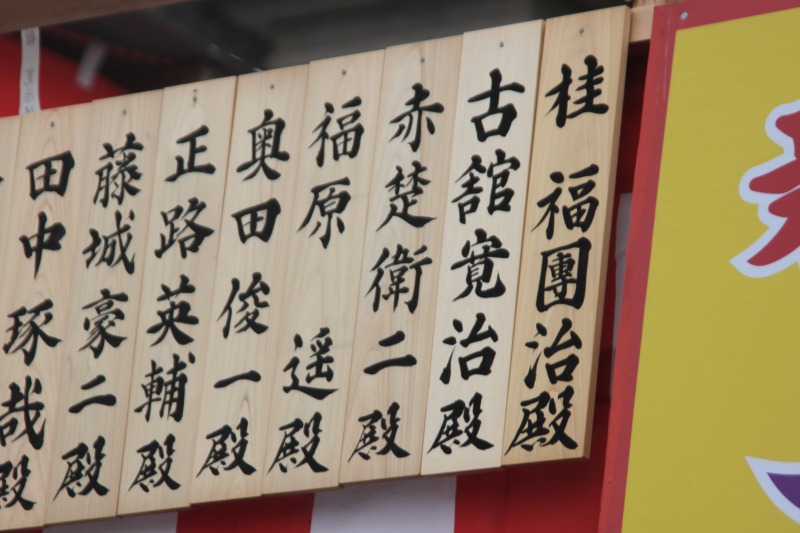 桂 福團治殿
古舘寛治殿
赤楚衛二殿
福原 遥殿
奥田俊一殿
正路英輔殿
藤城豪二殿
田中琢哉殿